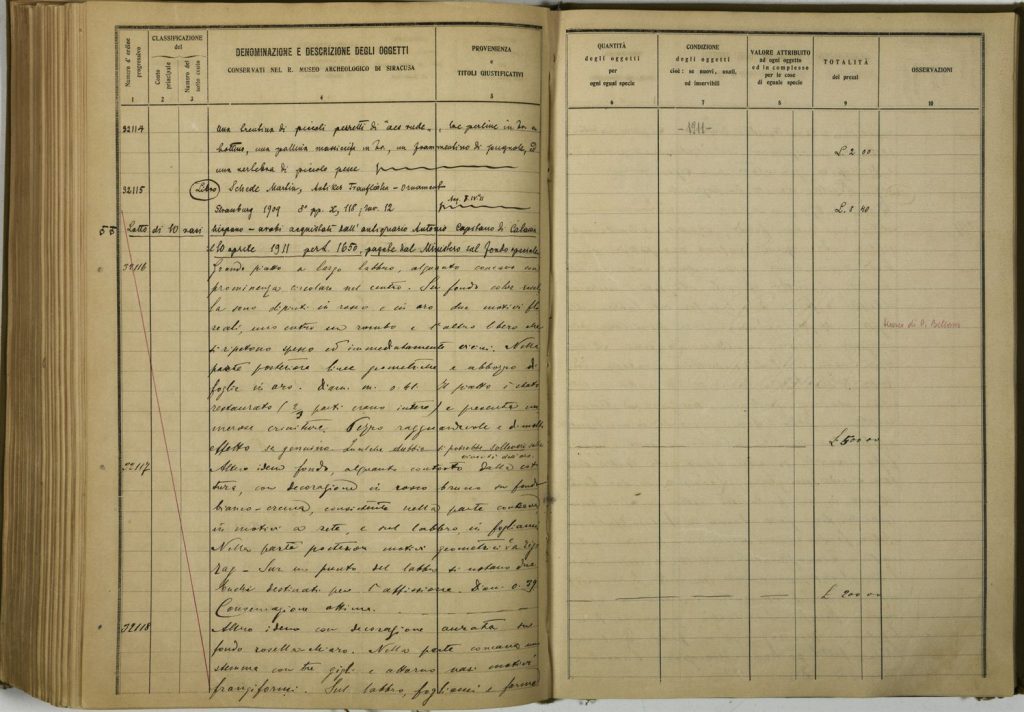 Numero d'ordine progressivo
CLASSIFICAZIONE
del
Conto principale
Numero del sotto conto
DENOMINAZIONE E DESCRIZIONE DEGLI OGGETTI
CONSERVATI NEL R. MUSEO ARCHEOLOGICO DI SIRACUSA
PROVENIENZA
e
TITOLI GIUSTIFICATIVI
1 2 3 4 5
QUANTITÀ
degli oggetti
per
ogni egual specie
CONDIZIONE
degli oggetti
cioè: se nuovi, usati,
od inservibili
VALORE ATTRIBUITO
ad ogni oggetto
ed in complesso
per le cose
di eguale specie
TOTALITÀ
dei prezzi
OSSERVAZIONI
6 7 8 9 10
32114 una trentina di piccoli pezzetti di "aes rude", tre perline in
una pallina massiccia in un frammentino di pugnale, ed
una vertebra di piccolo pesce
- 1911 -
L. 2 00
32115 Libro Schede Martin, Antikes Traufleisten - Ornament
Strassburg 1909 8° pp. X, 118; tav. 12
L. 8 40
Lotto di 10 vasi ispano - arabi acquistati dall'antiquario Antonio Capitano di
il 30 aprile 1911 per L. 1650, pagate dal Ministero sul fondo speciale
32116 Grande piatto a largo labbro, alquanto concavo con
prominenza circolare nel centro. Su fondo color
la sono dipinti in rosso e in oro due motivi flo
reali, uno entro un rombo e l'altro libero che
si ripetono spesso ed immediatamente vicini. Nella
parte posteriore linee geometriche e abbozzo di
foglie in oro. Diam. m. 0.41. Il piatto è stato
restaurato (2/3 parti erano intere) e presenta nu
merose crinature. Pezzo ragguardevole e di molto
effetto se genuino. Qualche dubbio si potrebbe sollevare sulla
dell'oro.
L. 500 00
32117 Altro idem fondo, alquanto contorto dalla cot
tura, con decorazione in rosso bruno su fondo
bianco-crema, consistente nella parte concava
in motivi a rete, e sul labbro in fogliami
Nella parte posteriore motivi geometrici a zig
zag - Su un punto del labbro si notano due
buchi destinati per l'affissione. Diam. 0.39
Conservazione ottima.
L 200 00
32118 Altro idem con decorazione aurata su
fondo rosella chiaro. Nella parte concava uno
stemma con tre gigli e attorno vasi motivi
frangiformi. Sul labbro, fogliami e forme